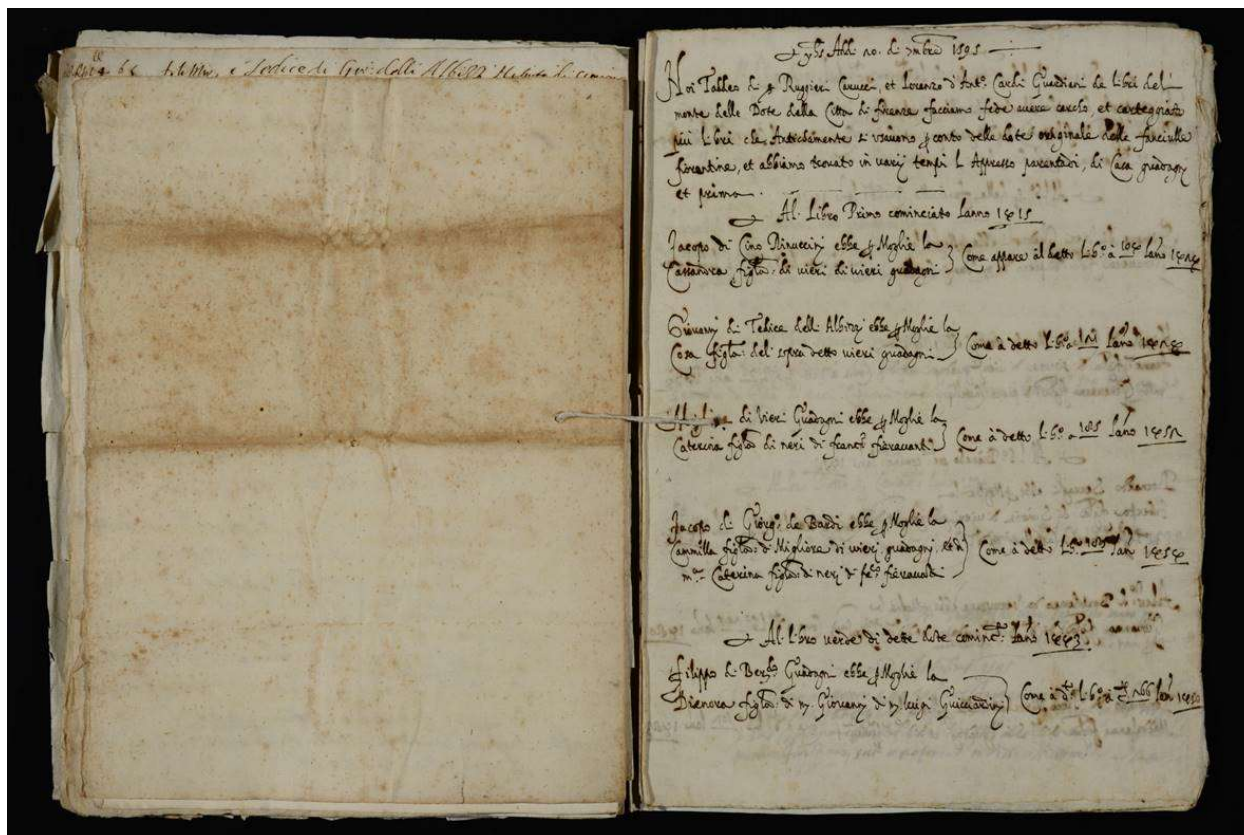 e Sodice di Gio: delli Albizi
yhs Addi 20. di xmbre 1595
Noi Taddeo di Ruggieri Carucci, et Lorenzo d'Ant.º Cardi Guardiani de Libri del
monte delle Dote della Citta di firenze facciamo fede avere cercho, et carteggiato
piu libri che Antichamente si usavono p conto delle dote originale delle fanciulle
fiorentine, et abbiamo trovato in varij tempi l Appresso parentadi, di Casa guadagnj
et prima.
Al Libro Primo cominciato Lanno
Jacopo di Cino Rinuccinj ebbe p Moglie la
Cassandra figla: di vieri di vieri guadagni
Come appare al detto Lib.º à Lano
Giovannj di Felice delli Albizzj ebbe p Moglie la
Cosa figla: del sopra detto vieri guadagni
Come à detto Lib.º à Lano
di Vieri Guadagni ebbe p Moglie la
Caterina figla: di neri di franc.º fieravanti
Come à detto Lib.º a 185 Lano
Jacopo di Giorg.º de Bardi ebbe p Moglie la
Cammilla figla: di Migliore di vierj guadagnj, et di
m.ª Caterina figla: di nerj di fr.º fieravanti
Come à detto Lano
Al libro verde di dette dote cominc.º Lano
Filippo di Ber.do Guadagni ebbe p Moglie la
Dienora figla: di m. Giovanni di m. luigi Guicciardinj
Come à d.º Lib.º à Lano